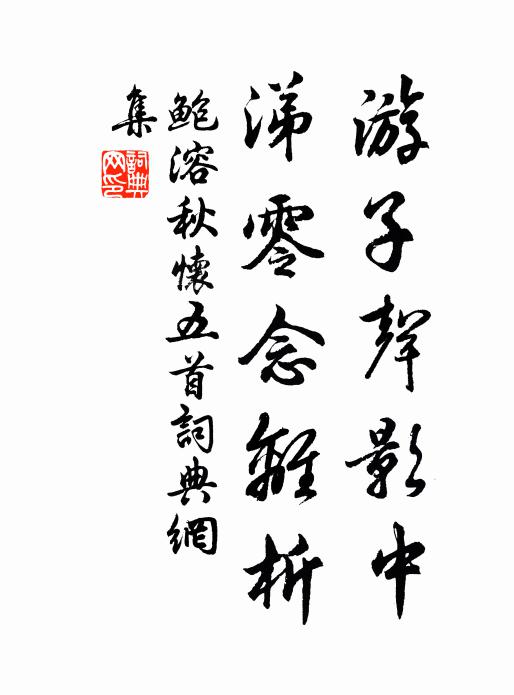 游子聲影中
涕零念離析
鮑溶秋懷五首詞典網
集
詞典網印